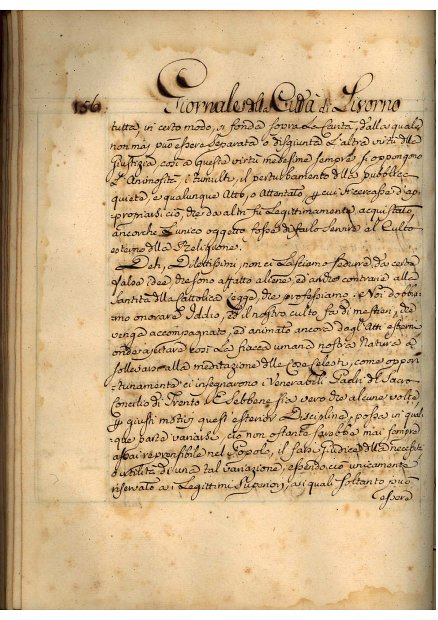 156 Giornale della Città di Livorno
tutta, in certo modo, si fonda sopra La Carità, dalla quale
non mai può essere separata o disgiunta L'altra virtù della
Giustizia, così a questa virtù medesima sempre si oppongono
L'Animosità, i tumulti, il perturbamento della pubblica
quiete, e qualunque Atto, o Attentato, per cui si cercasse d'ap-
propriarsi ciò, che da altri fu Legittimamente acquistato,
ancorche L'unico oggetto fosse di farlo servire al Culto
esterno della Religione.
Deh, Dilettissimi, non ci Lasciamo sedurre da certe
false idee, che sono affatto aliene, ed anche contrarie alla
Santità della Cattolica Legge, che professiamo: Noi dobbia-
mo onorare Iddio, ed il nostro culto fa di mestieri, che
venga accompagnato, ed animato ancora dagl'Atti esterni
onde ajutare così La fiacca umana nostra Natura a
sollevarsi alla meditazione delle Cose Celesti, come oppor-
tunamente ci insegnarono i Venerabili Padri del Sacro
Concilio di Trento. E sebbene sia vero che alcune volte,
per giusti motivi quest'esterior Disciplina, possa in qual-
que parte variarsi, ciò non ostante sarebbe mai sempre
assai reprensibile nel Popolo, il farsi Giudice della necessità,
o utilità di una tal variazione, essendo ciò unicamente
riservato a i Legittimi Superiori, a i quali soltanto può
essere